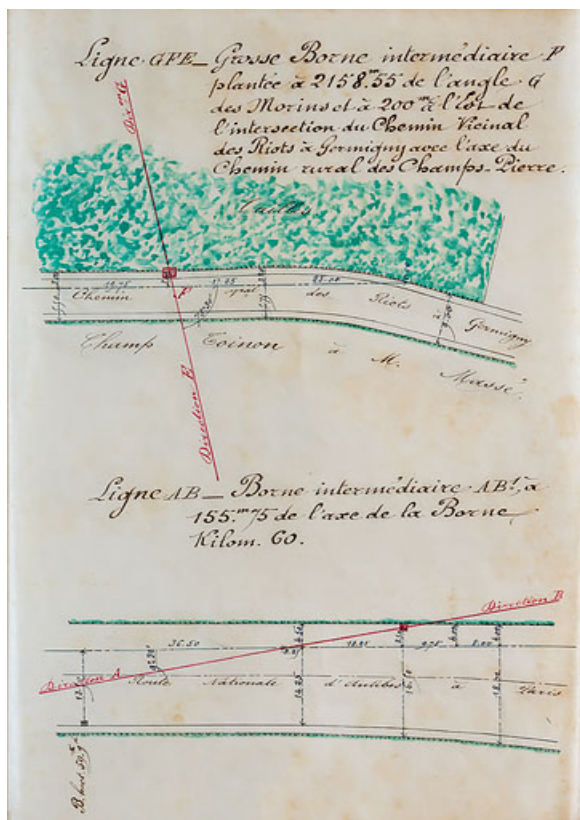 Ligne GFE_ Grosse Borne intermédiaire F
plantée à 2158.m55 de l'angle G
des Morins et à 200m à l'Est de
l'intersection du Chemin Vicinal
des Riots à Germigny avec l'axe du
Chemin rural des Champs-Pierre.
Taillis
Chemin des Riots à Germigny
F
Champ Toinon à M. Massé
Direction E
Ligne AB_ Borne intermédiaire AB1, à
155.m75 de l'axe de la Borne
Kilom. 60.
Direction B
36.50
Direction A
Route Nationale d'Antibes à Paris